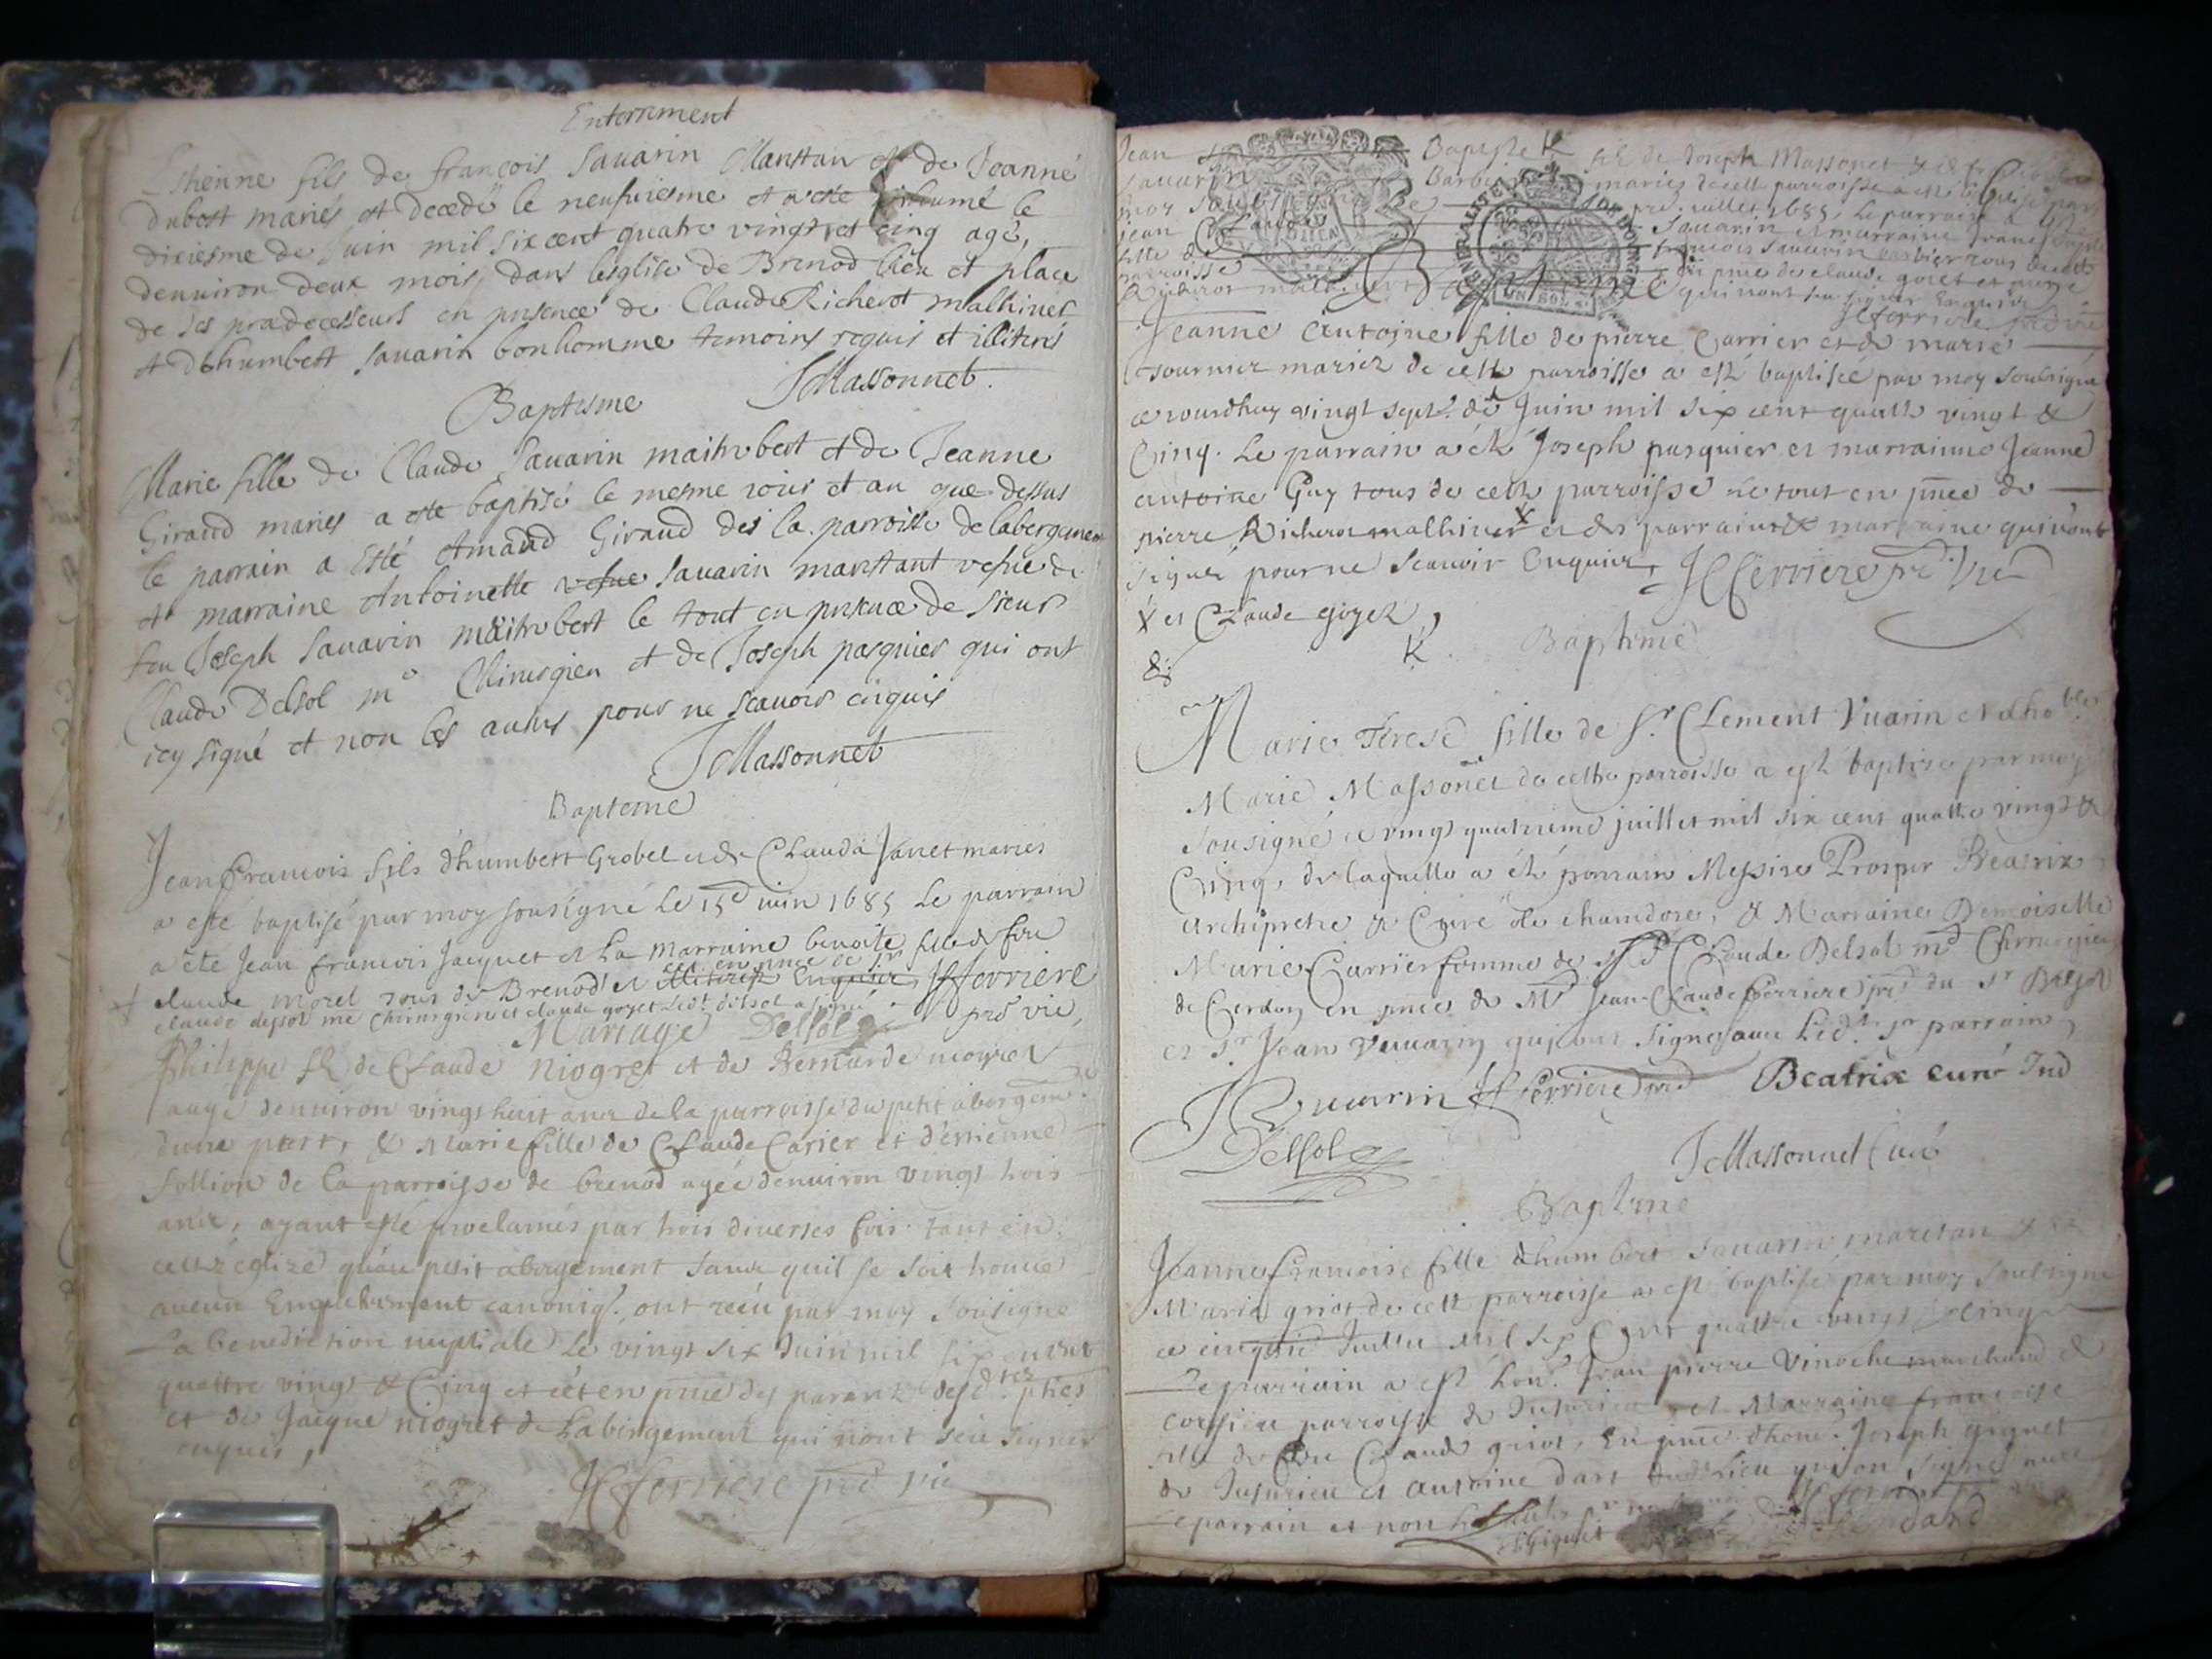 Enterrement
Estienne fils de françois Sauarin Manstan et de Jeanne
dubost mariés est decedé le neufuiesme et a esté inhumé le
dixiesme de Juin mil six cent quatre vingt et cinq agé,
denuiron deux mois, dans lesglise de Brenod lieu et place
de ses predecesseurs en presence de Claude Richerot malhiner
et dehumbert Sauarin bonhomme temoins requis et illiterés
JMassonnet.
Baptesme
Marie fille de Claude Sauarin maitrobert et de Jeanne
Giraud mariés a esté baptisé le mesme iour et an que dessus
le parrain a esté Amand Giraud des la parroisse de labergemen
et marraine Antoinette vefue Sauarin manstant vefue de
feu Joseph Sauarin maitrobert le tout en presence de sieur
Claude Delsol me Chirurgien et de Joseph pasquier qui ont
icy signé et non les autres pour ne scauoir enquis
JMassonnet
Bapteme
Jean francois fils d'humbert Grobel et de Clauda Janet mariés
a esté baptisé par moy sousigné Le 15e iuin 1685 Le parrain
a été Jean francois Jacquet et La Marraine benoite fille de feu
claude morel tous de Brenod et illiterés Enquis JCferriere
et en pnce de sr
claude delsol me chirurgien et claude goyet Ledt. delsol a signé. pre vic,
Mariage Delsol
Philippe fil de Claude Niogret et de Bernarde moyret
aagé denuiron vingt huit ans de la parroisse du petit abergemt.
dune part, & Marie fille de Claude Carier et d'estienne
Sollion de la parroisse de brenod agée denuiron vingt trois
ans, ayant esté proclamés par trois diverses fois tant en
cette église qu'au petit abergement sans quil se soit trouué
aucun Empechement canoniq. ont recéu par moy sousigné
La benediction nuptiale Le vingt six Juin mil six cent
quattre vingt & Cinq et cét en pnce des parants desd. pties
et de Jacque niogret de Labergement qui n'ont sceu signer
enquis,
JCferriere pre vic
Jean Baptiste fil de Joseph Massonet &
Sauarin Barbi mariés de cette parroisse a esté baptisé par
moy soubsigné Juillet 1685, Le parrain a esté
Jean Claude Sauarin et marraine
fille de francois Sauarin tous
parroisse en pnce de claude goiet et
Richerot malhiner qui n'ont sceu signer Enquis
Baptême
JCferriere pre vic
Jeanne Antoine fille de pierre Carrier et de marie
tournier mariez de cette parroisse a esté baptisée par moy soubsigné
ce iourdhuy vingt sept. de Juin mil six cent quatte vingt &
Cinq. Le parrain a été Joseph pasquier et marraine Jeanne
antoine Guy tous de cette parroisse le tout en pnce de
pierre Richerot malhiner et des parrain & marraine qui n'ont
signé pour ne Scauoir Enquis, JCferriere pre. vic
X et Claude goyet,
Baptime
Marie Terese fille de Sr. Clement Vuarin et dhoble
Marie Massonet de cette parroisse a esté baptisé par moy
sousigné ce vingt quatrieme juillet mil six cent quatte vingt &
Cinq, de laquelle a été parrain Messire Prosper Beatrix
archiprêtre & Curé de chandore, & Marraine Demoiselle
Marie Carrier femme de Sr Claude Delsol me Chirurgien
de Cerdon en pnce de Mr Jean-Claude ferriere pre du Sr Delsol
et Sr Jean Vuuarin qui ont signé auec Ledt. sr parrain,
JVuuarin JCferriere pre Beatrix curé Ind
Delsol
JMassonnet Curé
Baptême
Jeanne francoise fille dhumbert Sauarin marestan & de
Marie griot de cette parroisse a esté baptisé par moy soubsigné
ce Juillet Mil six Cent quattre vingt & cinq
Le parrain a esté hon. Jean pierre Vinoche marchand de
parroisse de Jusurieu et Marraine francoise
fille de feu Claude griot, En pnce dhon. Joseph griguet
de Jusurieu et antoine dart dud. Lieu qui on signés auec
Le parrain et non